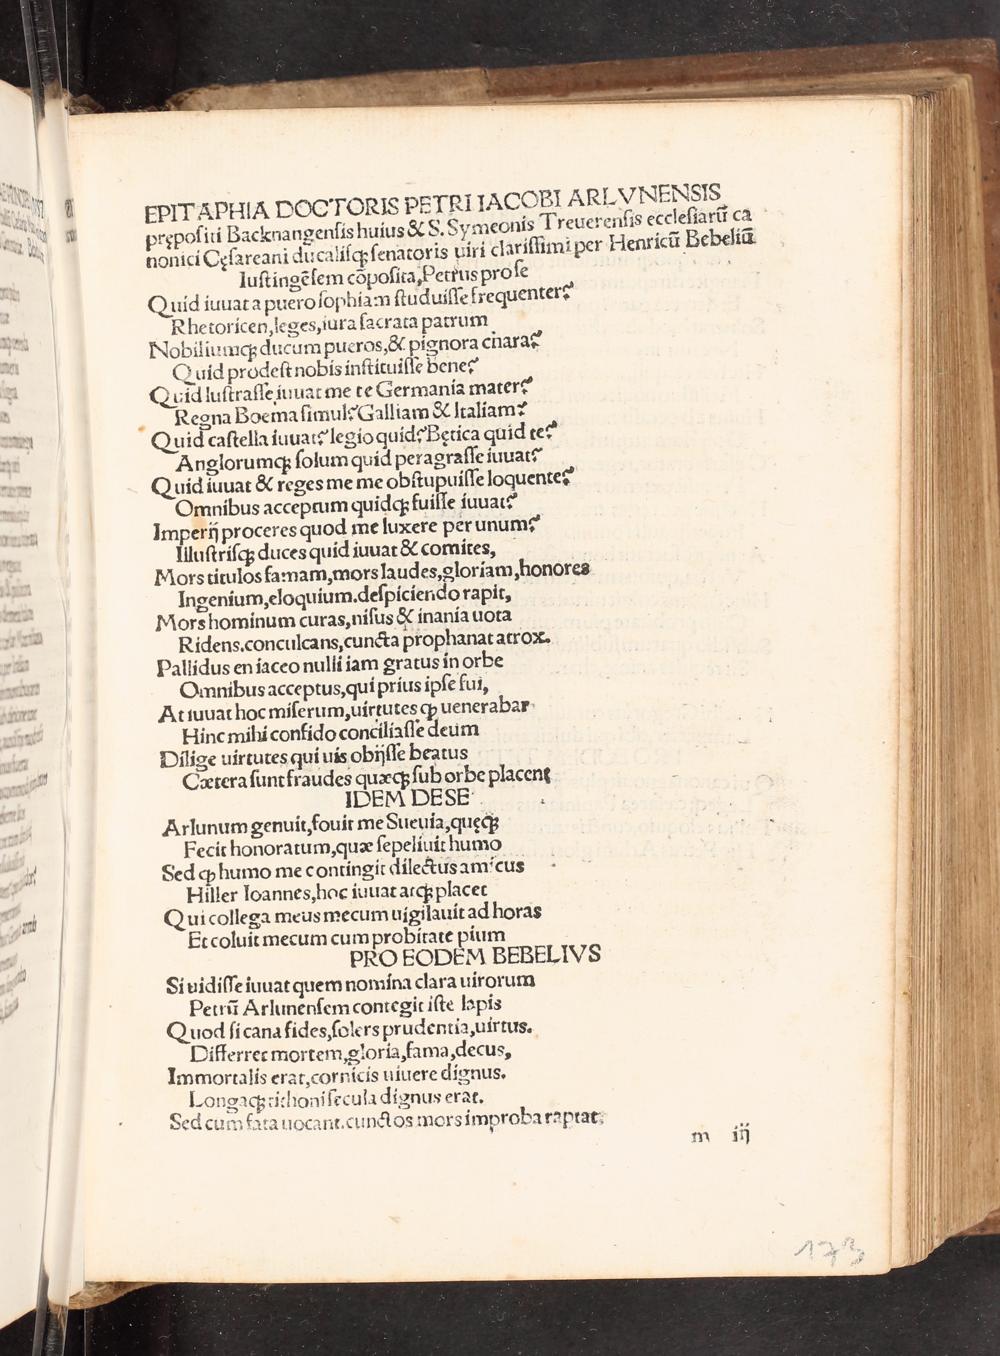 EPITAPHIA DOCTORIS PETRI IACOBI ARLVNENSIS
prępositi Backnangensis huius & S. Symeonis Treuerensis ecclesiarū ca
nonici Cęsareani ducalisqȝ senatoris uiri clarissimi per Henricū Bebeliū
Iustingēsem cōposita, Petrus pro se
Quid iuuat a puero sophiam studuisse frequenter?
Rhetoricen, leges, iura sacrata patrum
Nobiliumqȝ ducum pueros, & pignora chara?
Quid prodest nobis instituisse bene?
Quid lustrasse iuuat me te Germania mater?
Regna Boema simul? Galliam & Italiam?
Quid castella iuuat? legio quid? Bętica quid te?
Anglorumqȝ solum quid peragrasse iuuat?
Quid iuuat & reges me me obstupuisse loquente?
Omnibus acceptum quidqȝ fuisse iuuat?
Imperij proceres quod me luxere per unum?
Illustrisqȝ duces quid iuuat & comites,
Mors titulos famam, mors laudes, gloriam, honores
Ingenium, eloquium. despiciendo rapit,
Mors hominum curas, nisus & inania uota
Ridens. conculcans, cuncta prophanat atrox.
Pallidus en iaceo nulli iam gratus in orbe
Omnibus acceptus, qui prius ipse fui,
At iuuat hoc miserum, uirtutes ꝙ uenerabar
Hinc mihi confido conciliasse deum
Dilige uirtutes qui uis obijsse beatus
Cætera sunt fraudes quæqȝ sub orbe placent
IDEM DE SE
Arlunum genuit, fouit me Sueuia, quęqȝ
Fecit honoratum, quæ sepeliuit humo
Sed ꝙ humo me contingit dilectus amicus
Hiller Ioannes, hoc iuuat atqȝ placet
Qui collega meus mecum uigilauit ad horas
Et coluit mecum cum probitate pium
PRO EODEM BEBELIVS
Si uidisse iuuat quem nomina clara uirorum
Petrū Arlunensem contegit iste lapis
Quod si cana fides, solers prudentia, uirtus.
Differret mortem, gloria, fama, decus,
Immortalis erat, cornicis uiuere dignus.
Longaqȝ tithoni secula dignus erat.
Sed cum fata uocant. cunctos mors improba raptat,
m iij
173